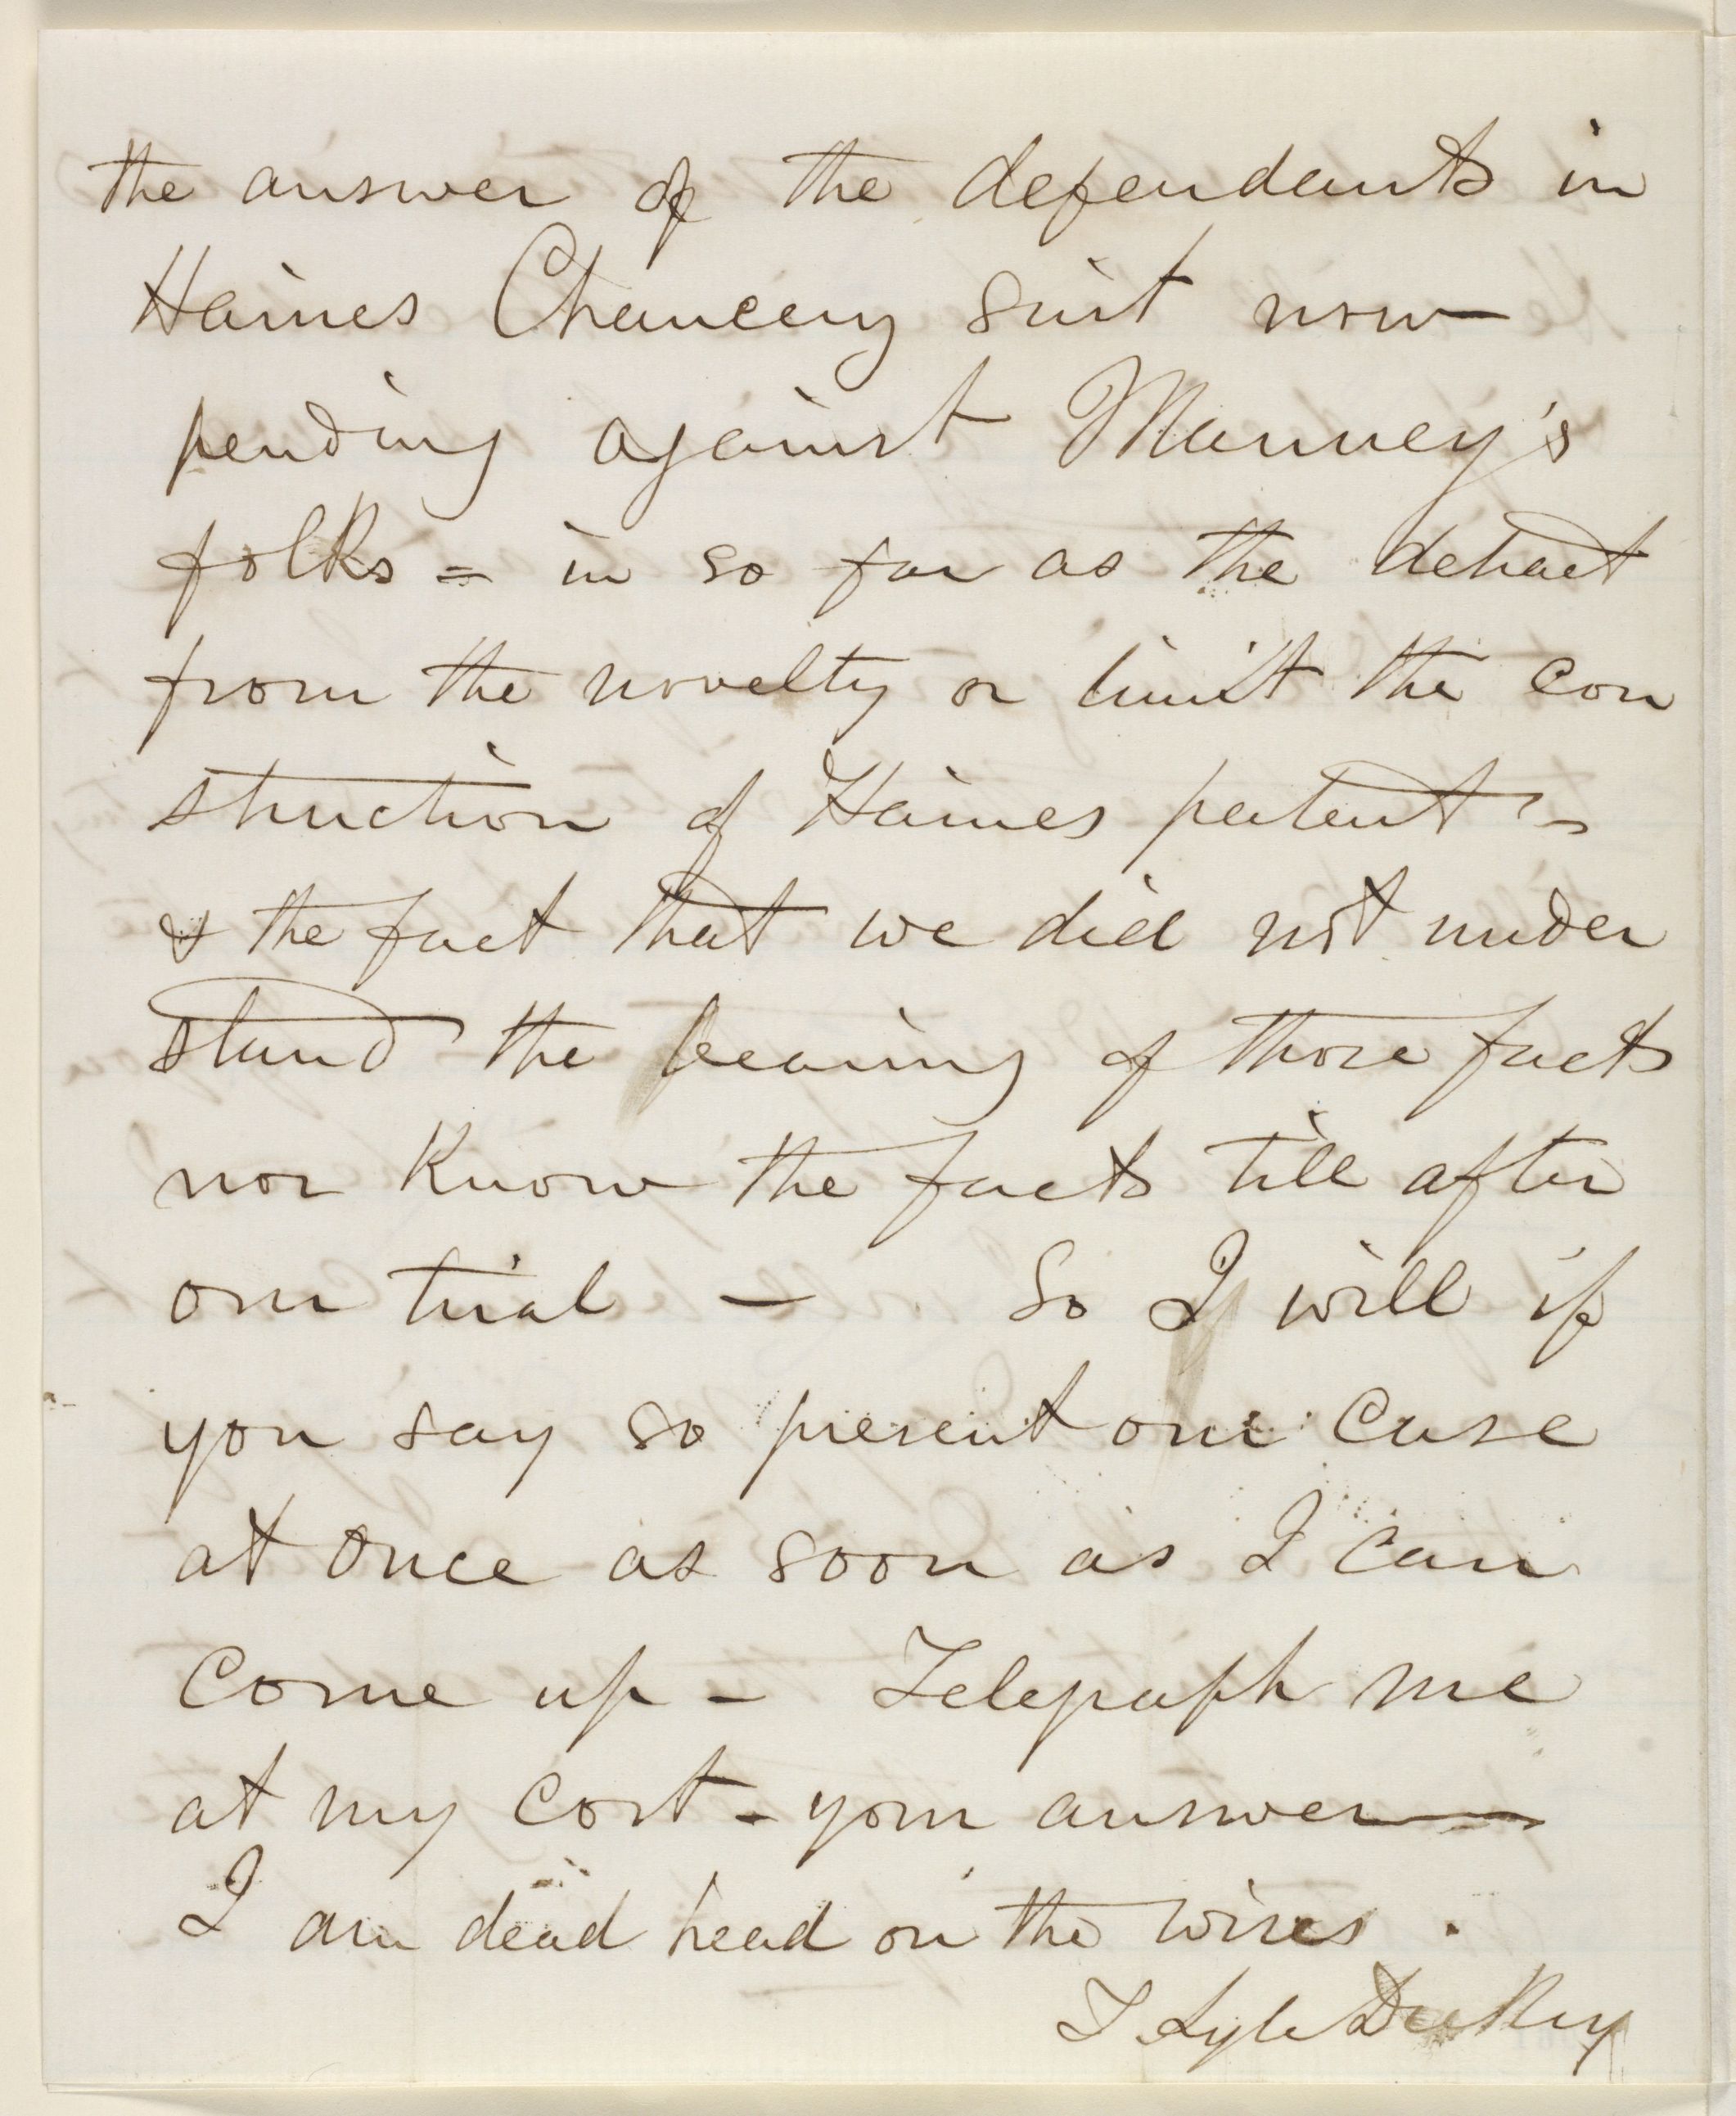 the answer of the defendants in
Haines Chancery suit now
pending against Manney's
folks = in so far as the detract
from the novelty or limit the con
struction of Haines patent -
& the fact that we did not under
stand the bearing of those facts
nor know the facts till after
our trial - So I will if
you say so present our case
at once as soon as I can
come up - Telegraph me
at my cost - your answer -
I am dead head on the wires.
T Lyle Dickey